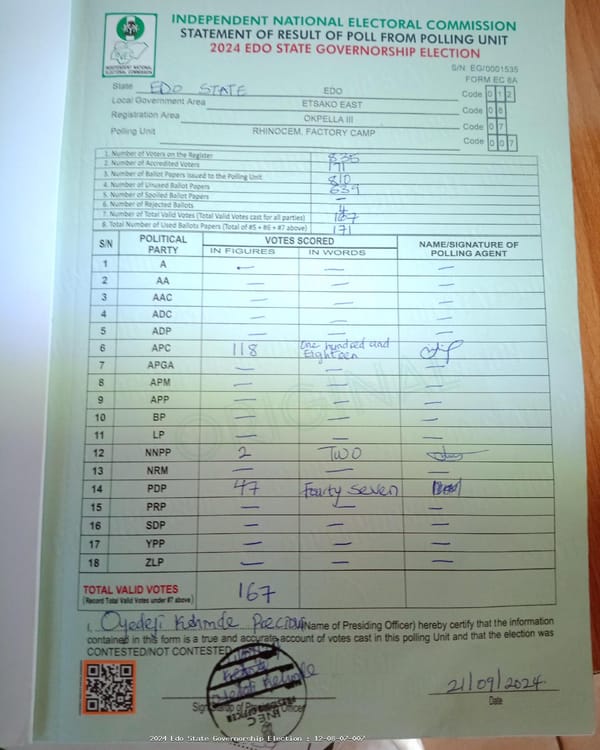 INDEPENDENT NATIONAL ELECTORAL COMMISSION
STATEMENT OF RESULT OF POLL FROM POLLING UNIT
2024 EDO STATE GOVERNORSHIP ELECTION
INEC
INDEPENDENT NATIONAL ELECTORAL COMMISSION
S/N: EG/0001535
FORM EC 8A
State EDO STATE EDO Code 0 1 2
Local Government Area ETSAKO EAST Code 0 8
Registration Area OKPELLA III Code 0 7
Polling Unit RHINOCEM, FACTORY CAMP Code 0 0 7
1. Number of Voters on the Register 835
2. Number of Accredited Voters 171
3. Number of Ballot Papers issued to the Polling Unit 810
4. Number of Unused Ballot Papers 639
5. Number of Spoiled Ballot Papers —
6. Number of Rejected Ballots 4
7. Number of Total Valid Votes (Total Valid Votes cast for all parties) 167
8. Total Number of Used Ballots Papers (Total of #5 + #6 + #7 above) 171
S/N POLITICAL PARTY VOTES SCORED NAME/SIGNATURE OF POLLING AGENT
IN FIGURES IN WORDS
1 A — — —
2 AA — — —
3 AAC — — —
4 ADC — — —
5 ADP — — —
6 APC 118 One hundred and Eighteen
7 APGA — — —
8 APM — — —
9 APP — — —
10 BP — — —
11 LP — — —
12 NNPP 2 TWO
13 NRM — — —
14 PDP 47 Fourty Seven
15 PRP — — —
16 SDP — — —
17 YPP — — —
18 ZLP — — —
ORIGINAL
TOTAL VALID VOTES 167
(Record Total Valid Votes under #7 above)
I, Oyedeji Kehinde Precious (Name of Presiding Officer) hereby certify that the information
contained in this form is a true and accurate account of votes cast in this polling Unit and that the election was
CONTESTED/NOT CONTESTED
INEC
Signature of Presiding Officer
21/09/2024
Date
2024 Edo State Governorship Election : 12-08-07-007